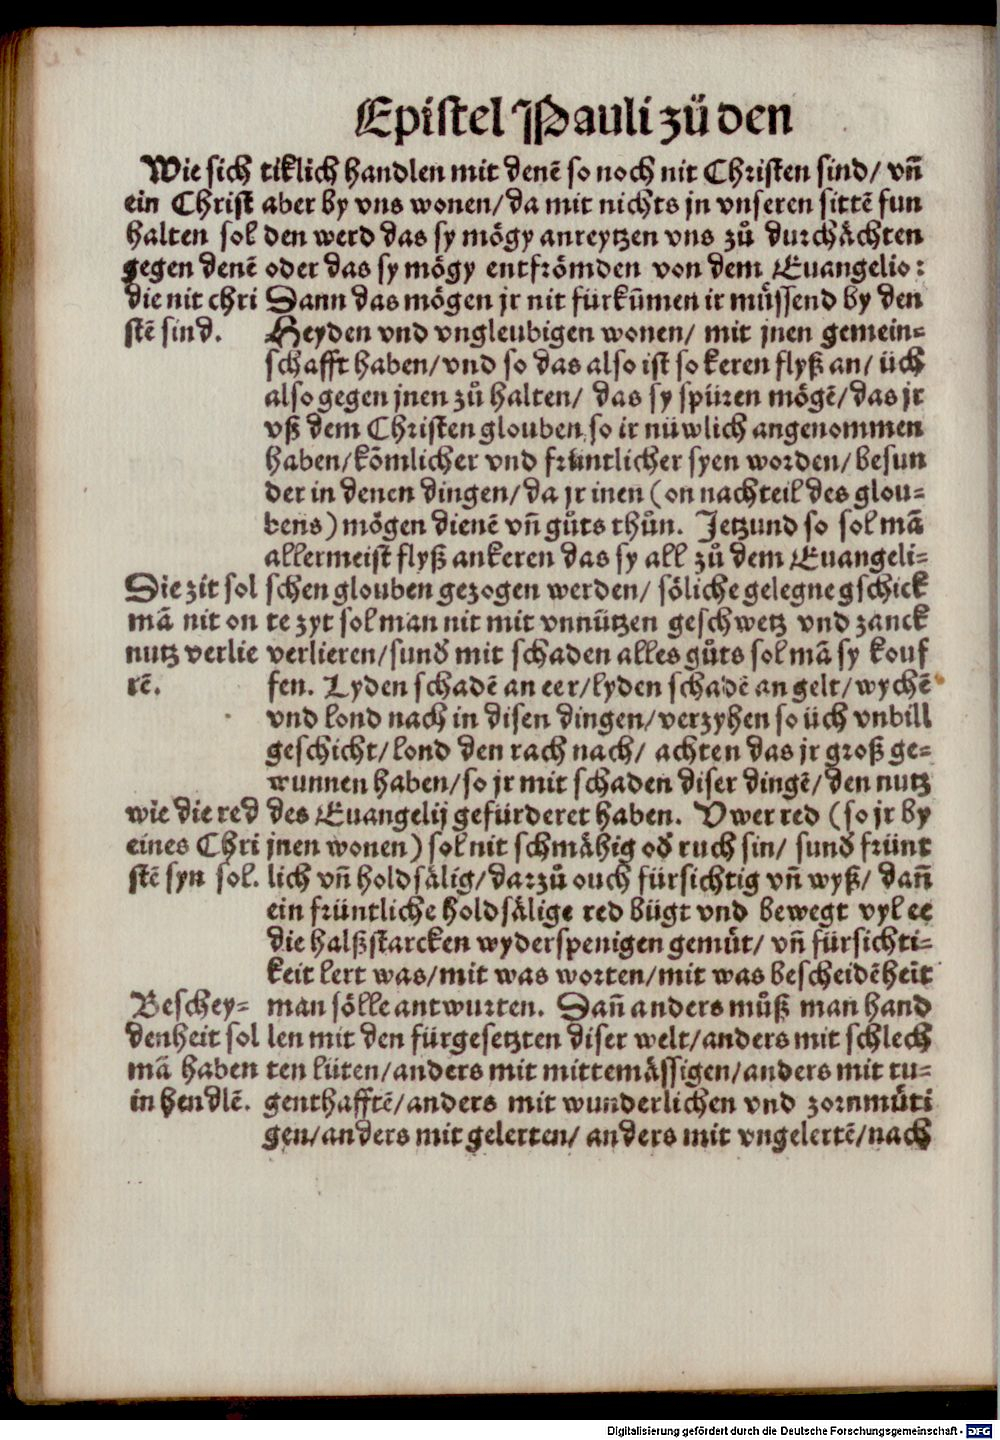 Epistel Pauli zů den
Wie sich
ein Christ
halten sol
gegen denē
die nit chri
stē sind.
tiklich handlen mit denē so noch nit Christen sind/ vñ
aber by vns wonen/ da mit nichts jn vnseren sittē fun
den werd das sy mögy anreytzen vns zů durchächten
oder das sy mögy entfrömden von dem Euangelio:
Dann das mögen jr nit fürkūmen ir müssend by den
Heyden vnd vngleubigen wonen/ mit jnen gemein-
schafft haben/ vnd so das also ist so keren flyß an/ üch
also gegen jnen zů halten/ das sy spüren mögē/ das jr
vß dem Christen glouben so ir nüwlich angenommen
haben/ kōmlicher vnd früntlicher syen worden/ besun
der in denen dingen/ da jr inen (on nachteil des glou-
bens) mögen dienē vñ gůts thůn. Jetzund so sol mā
allermeist flyß ankeren das sy all zů dem Euangeli-
Die zit sol
mā nit on
nutz verlie
rē.
schen glouben gezogen werden/ söliche gelegne gschick
te zyt sol man nit mit vnnützen geschwetz vnd zanck
verlieren/ sunď mit schaden alles gůts sol mā sy kouf
fen. Lyden schadē an eer/ lyden schadē an gelt/ wychē
vnd lond nach in disen dingen/ verzyhen so üch vnbill
geschicht/ lond den rach nach/ achten das jr groß ge-
wunnen haben/ so jr mit schaden diser dingē/ den nutz
wie die red
eines Chri
stē syn sol.
des Euangelij gefürderet haben. Vwer red (so jr by
jnen wonen) sol nit schmähig oď ruch sin/ sunď frünt
lich vñ holdsälig/ darzů ouch fürsichtig vñ wyß/ dañ
ein früntliche holdsälige red bügt vnd bewegt vyl ee
die halßstarcken wyderspenigen gemüt/ vñ fürsichti-
keit lert was/ mit was worten/ mit was bescheidēheit
Beschey-
denheit sol
mā haben
in hendlē.
man sölle antwurten. Dañ anders můß man hand
len mit den fürgesetzten diser welt/ anders mit schlech
ten lüten/ anders mit mittemässigen/ anders mit tu-
genthafftē/ anders mit wunderlichen vnd zornmüti
gen/ anders mit gelerten/ anders mit vngelertē/ nach
Digitalisierung gefördert durch die Deutsche Forschungsgemeinschaft - DFG